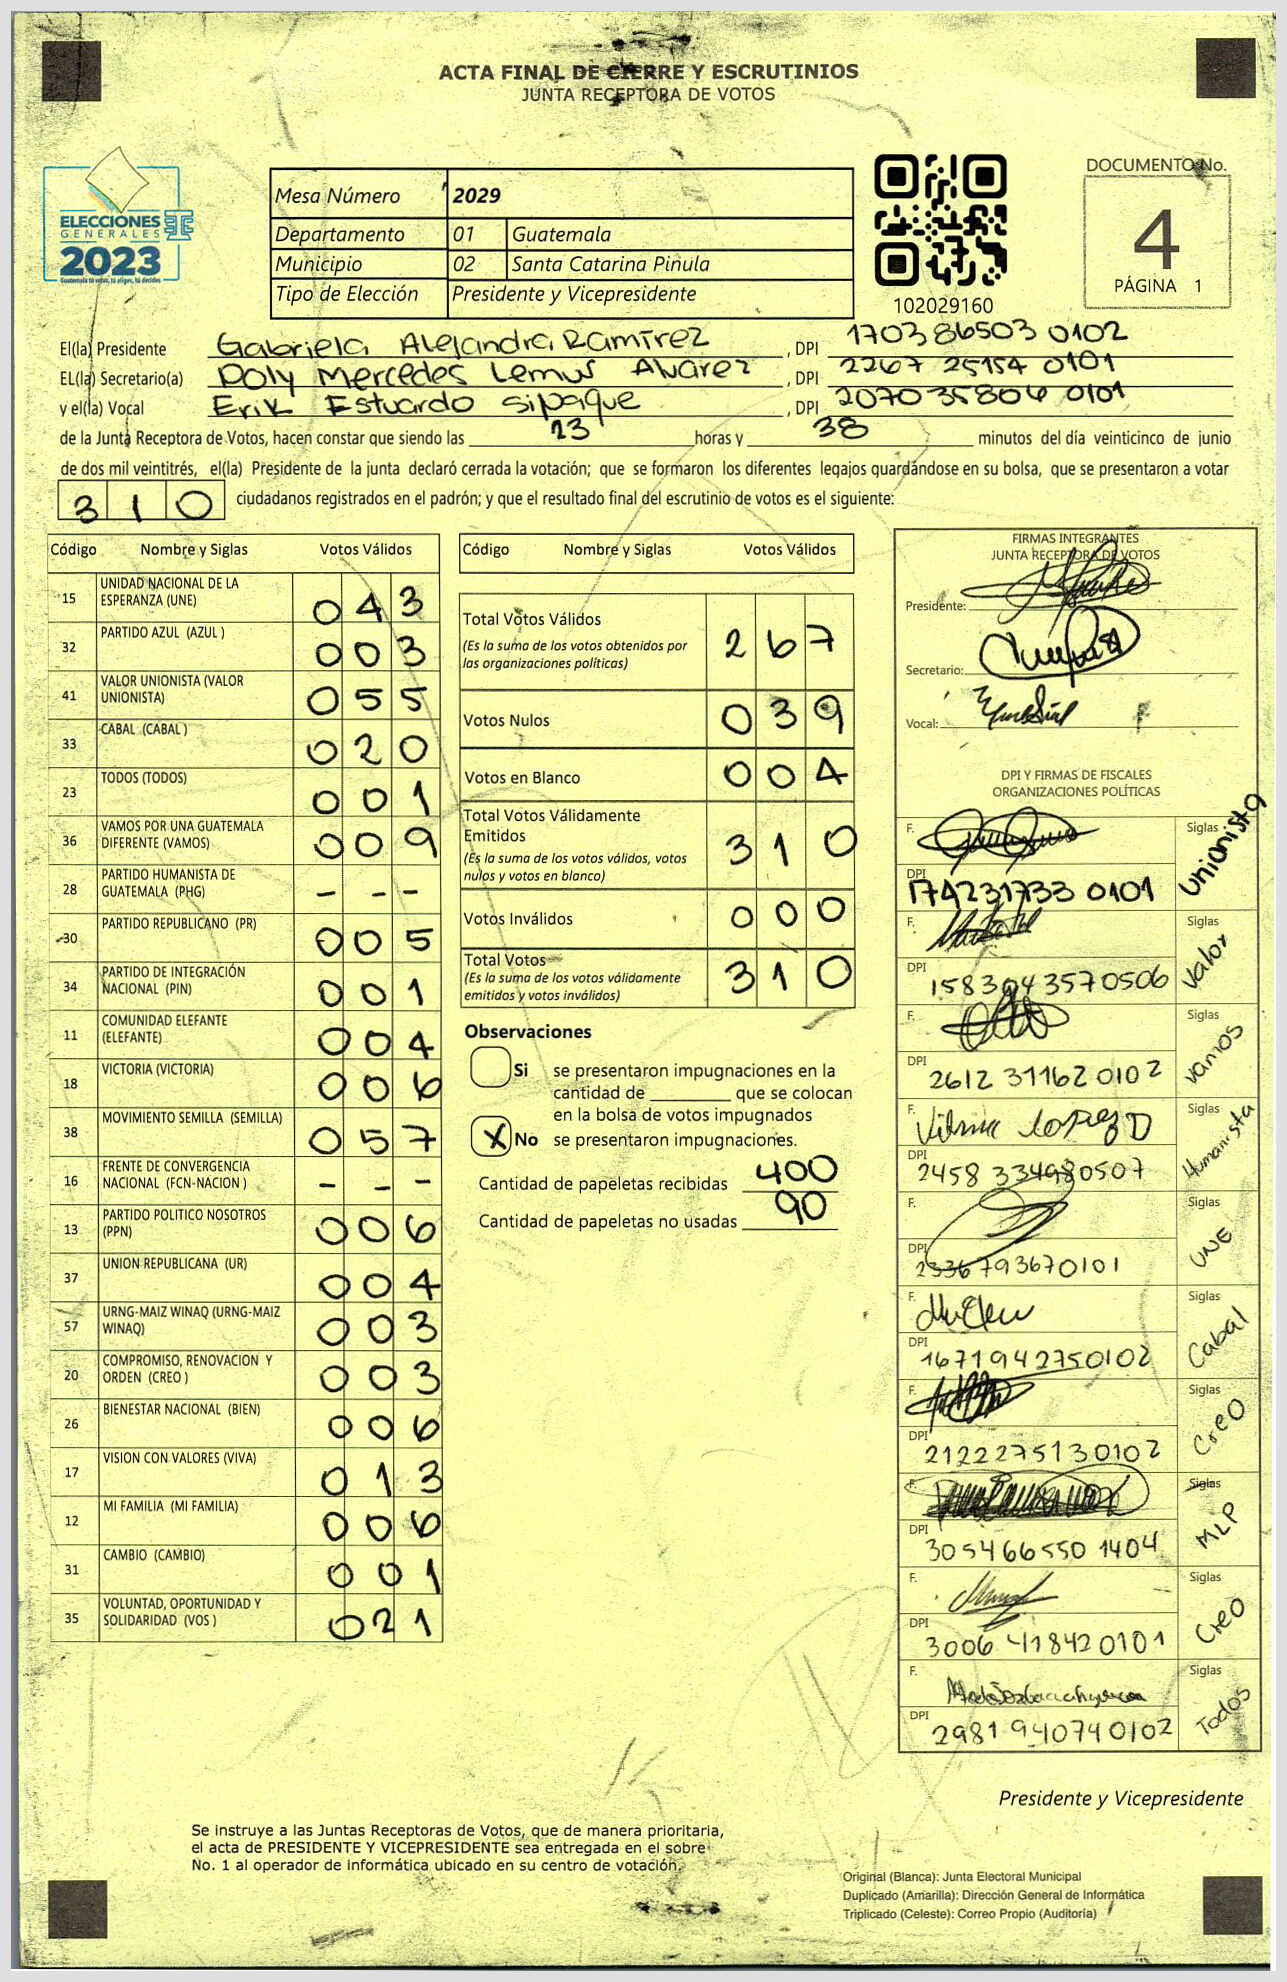 ACTA FINAL DE CIERRE Y ESCRUTINIOS
JUNTA RECEPTORA DE VOTOS
ELECCIONES
GENERALES
2023
Guatemala tú votas, tú eliges, tú decides
Mesa Número 2029
Departamento 01 Guatemala
Municipio 02 Santa Catarina Pinula
Tipo de Elección Presidente y Vicepresidente
102029160
DOCUMENTO No.
4
PÁGINA 1
El(la) Presidente Gabriela Alejandra Ramírez , DPI 1703 86503 0102
EL(la) Secretario(a) Doly Mercedes Lemus Alvarez , DPI 2267 25154 0101
y el(la) Vocal Erik Estuardo Sipaque , DPI 2070 35806 0101
de la Junta Receptora de Votos, hacen constar que siendo las 23 horas y 38 minutos del día veinticinco de junio
de dos mil veintitrés, el(la) Presidente de la junta declaró cerrada la votación; que se formaron los diferentes legajos guardándose en su bolsa, que se presentaron a votar
310 ciudadanos registrados en el padrón; y que el resultado final del escrutinio de votos es el siguiente:
Código Nombre y Siglas Votos Válidos
15 UNIDAD NACIONAL DE LA ESPERANZA (UNE) 043
32 PARTIDO AZUL (AZUL ) 003
41 VALOR UNIONISTA (VALOR UNIONISTA) 055
33 CABAL (CABAL ) 020
23 TODOS (TODOS) 001
36 VAMOS POR UNA GUATEMALA DIFERENTE (VAMOS) 009
28 PARTIDO HUMANISTA DE GUATEMALA (PHG) - - -
30 PARTIDO REPUBLICANO (PR) 005
34 PARTIDO DE INTEGRACIÓN NACIONAL (PIN) 001
11 COMUNIDAD ELEFANTE (ELEFANTE) 004
18 VICTORIA (VICTORIA) 006
38 MOVIMIENTO SEMILLA (SEMILLA) 057
16 FRENTE DE CONVERGENCIA NACIONAL (FCN-NACION ) - - -
13 PARTIDO POLITICO NOSOTROS (PPN) 006
37 UNION REPUBLICANA (UR) 004
57 URNG-MAIZ WINAQ (URNG-MAIZ WINAQ) 003
20 COMPROMISO, RENOVACION Y ORDEN (CREO ) 003
26 BIENESTAR NACIONAL (BIEN) 006
17 VISION CON VALORES (VIVA) 013
12 MI FAMILIA (MI FAMILIA) 006
31 CAMBIO (CAMBIO) 001
35 VOLUNTAD, OPORTUNIDAD Y SOLIDARIDAD (VOS ) 021
Código Nombre y Siglas Votos Válidos
Total Votos Válidos 267
(Es la suma de los votos obtenidos por
las organizaciones políticas)
Votos Nulos 039
Votos en Blanco 004
Total Votos Válidamente
Emitidos 310
(Es la suma de los votos válidos, votos
nulos y votos en blanco)
Votos Inválidos 000
Total Votos 310
(Es la suma de los votos válidamente
emitidos y votos inválidos)
Observaciones
Si se presentaron impugnaciones en la
cantidad de ________ que se colocan
en la bolsa de votos impugnados
X No se presentaron impugnaciones.
Cantidad de papeletas recibidas 400
Cantidad de papeletas no usadas 90
FIRMAS INTEGRANTES
JUNTA RECEPTORA DE VOTOS
Presidente:
Secretario:
Vocal:
DPI Y FIRMAS DE FISCALES
ORGANIZACIONES POLÍTICAS
F. Siglas Unionista
DPI 174231733 0101
F. Siglas Valor
DPI 1583043570506
F. Siglas Vamos
DPI 2612 31162 0102
F. Vilma Lopez D Siglas Humanista
DPI 2458 334980507
F. Siglas UNE
DPI 2336793670101
F. Siglas Cabal
DPI 1671942750102
F. Siglas Creo
DPI 2122275130102
F. Siglas MLP
DPI 305466550 1404
F. Siglas Creo
DPI 3006 418420101
F. Siglas Todos
DPI 2981940740102
Presidente y Vicepresidente
Se instruye a las Juntas Receptoras de Votos, que de manera prioritaria,
el acta de PRESIDENTE Y VICEPRESIDENTE sea entregada en el sobre
No. 1 al operador de informática ubicado en su centro de votación.
Original (Blanca): Junta Electoral Municipal
Duplicado (Amarilla): Dirección General de Informática
Triplicado (Celeste): Correo Propio (Auditoría)